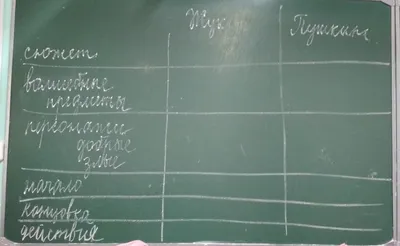 Жук Пушкин
сюжет
волшебные
предметы
персонажи
добрые
злые
начало
концовка
действия